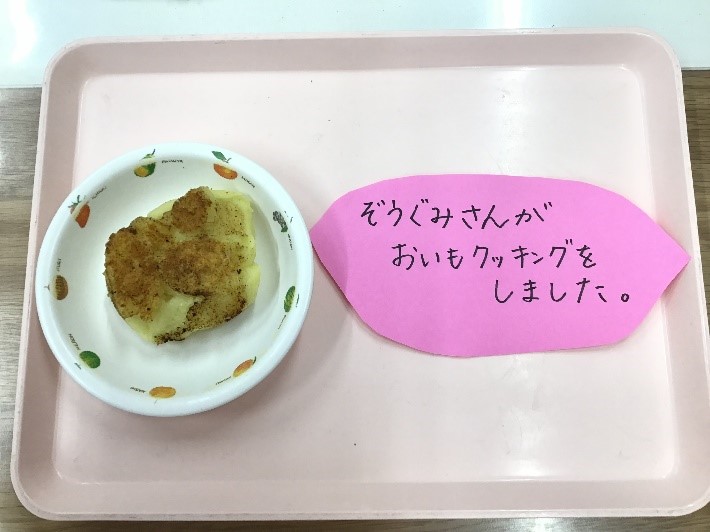 ぞうぐみさんが
おいもクッキングを
しました。